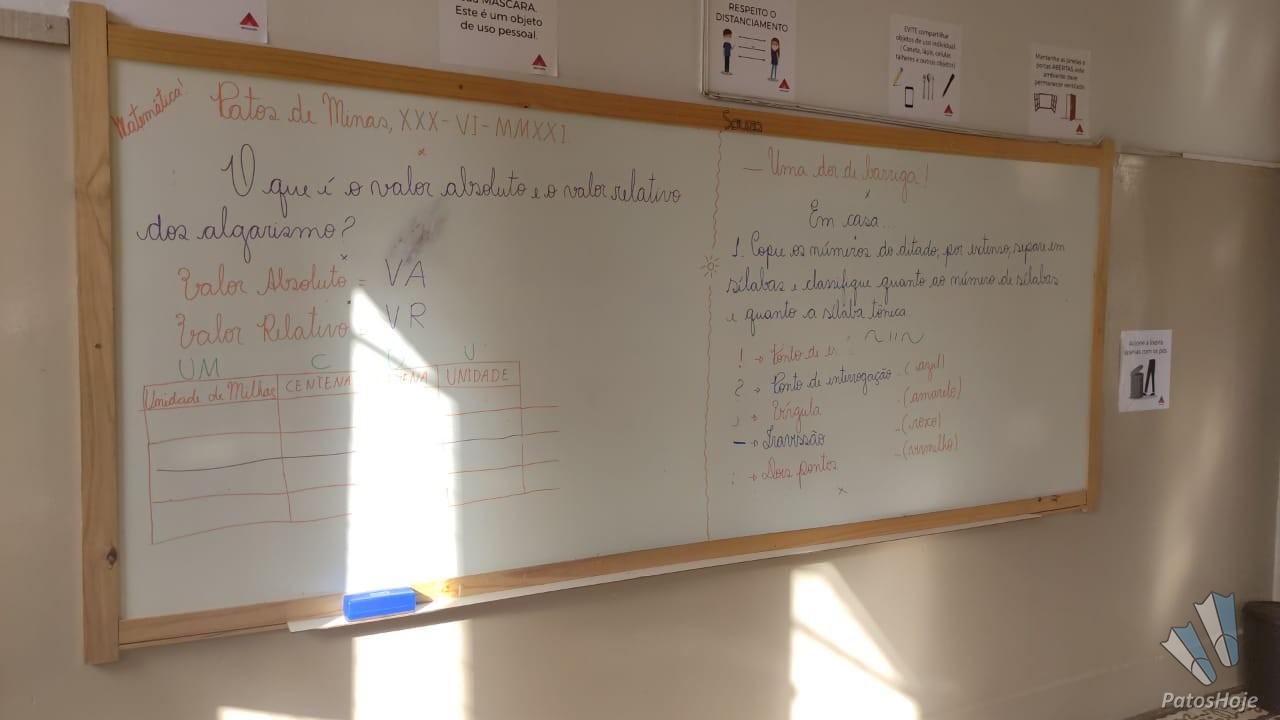 sua MÁSCARA.
Este é um objeto
de uso pessoal.
RESPEITO O
DISTANCIAMENTO
EVITE compartilhar
objetos de uso individual
(Caneta, lápis, celular,
talheres e outros objetos)
Mantenha as janelas e
portas ABERTAS, este
ambiente deve
permanecer ventilado.
Matemática!
Patos de Minas, XXX-VI-MMXXI
O que é o valor absoluto e o valor relativo
dos algarismo?
Valor Absoluto = VA
Valor Relativo = VR
UM C U
Unidade de Milhar CENTENA ENA UNIDADE
— Uma dor de barriga!
Em casa...
1. Copie os números do ditado, por extenso, separe em
sílabas e classifique quanto ao número de sílabas
e quanto a sílaba tônica.
! → Ponto de
? → Ponto de interrogação - (azul)
, → Vírgula - (amarelo)
— → Travessão - (roxo)
: → Dois pontos - (vermelho)
Acione a lixeira
apenas com os pés
PatosHoje